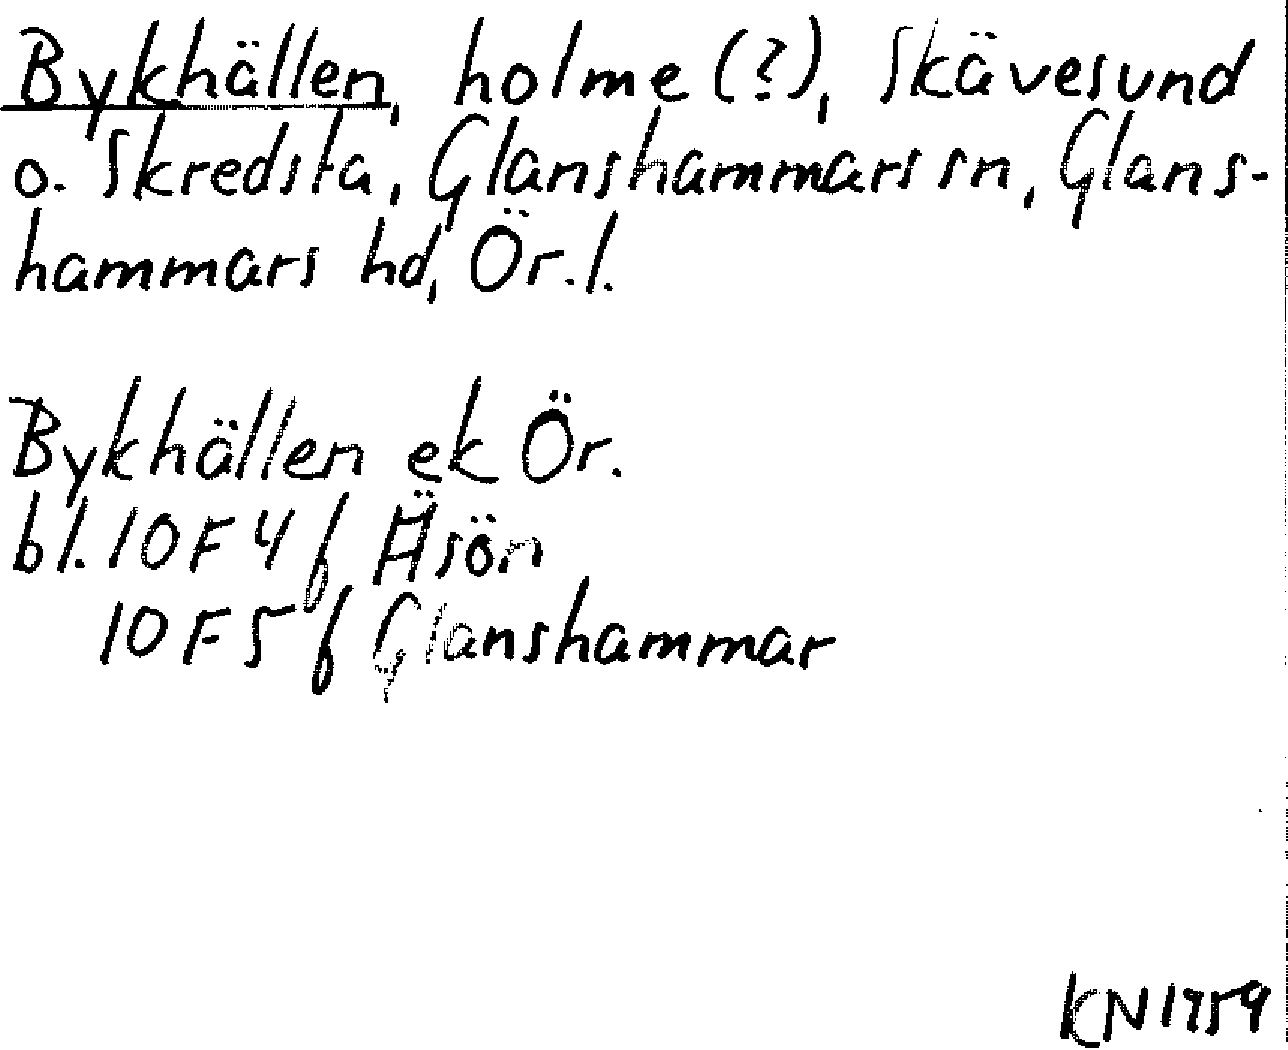 Bykhällen, holme (?), Skävesund
o. Skredsta, Glanshammars sn, Glans-
hammars hd, Ör. l.
Bykhällen ek Ör.
bl. 10F4f Äsön
10F5f Glanshammar
KN 1959